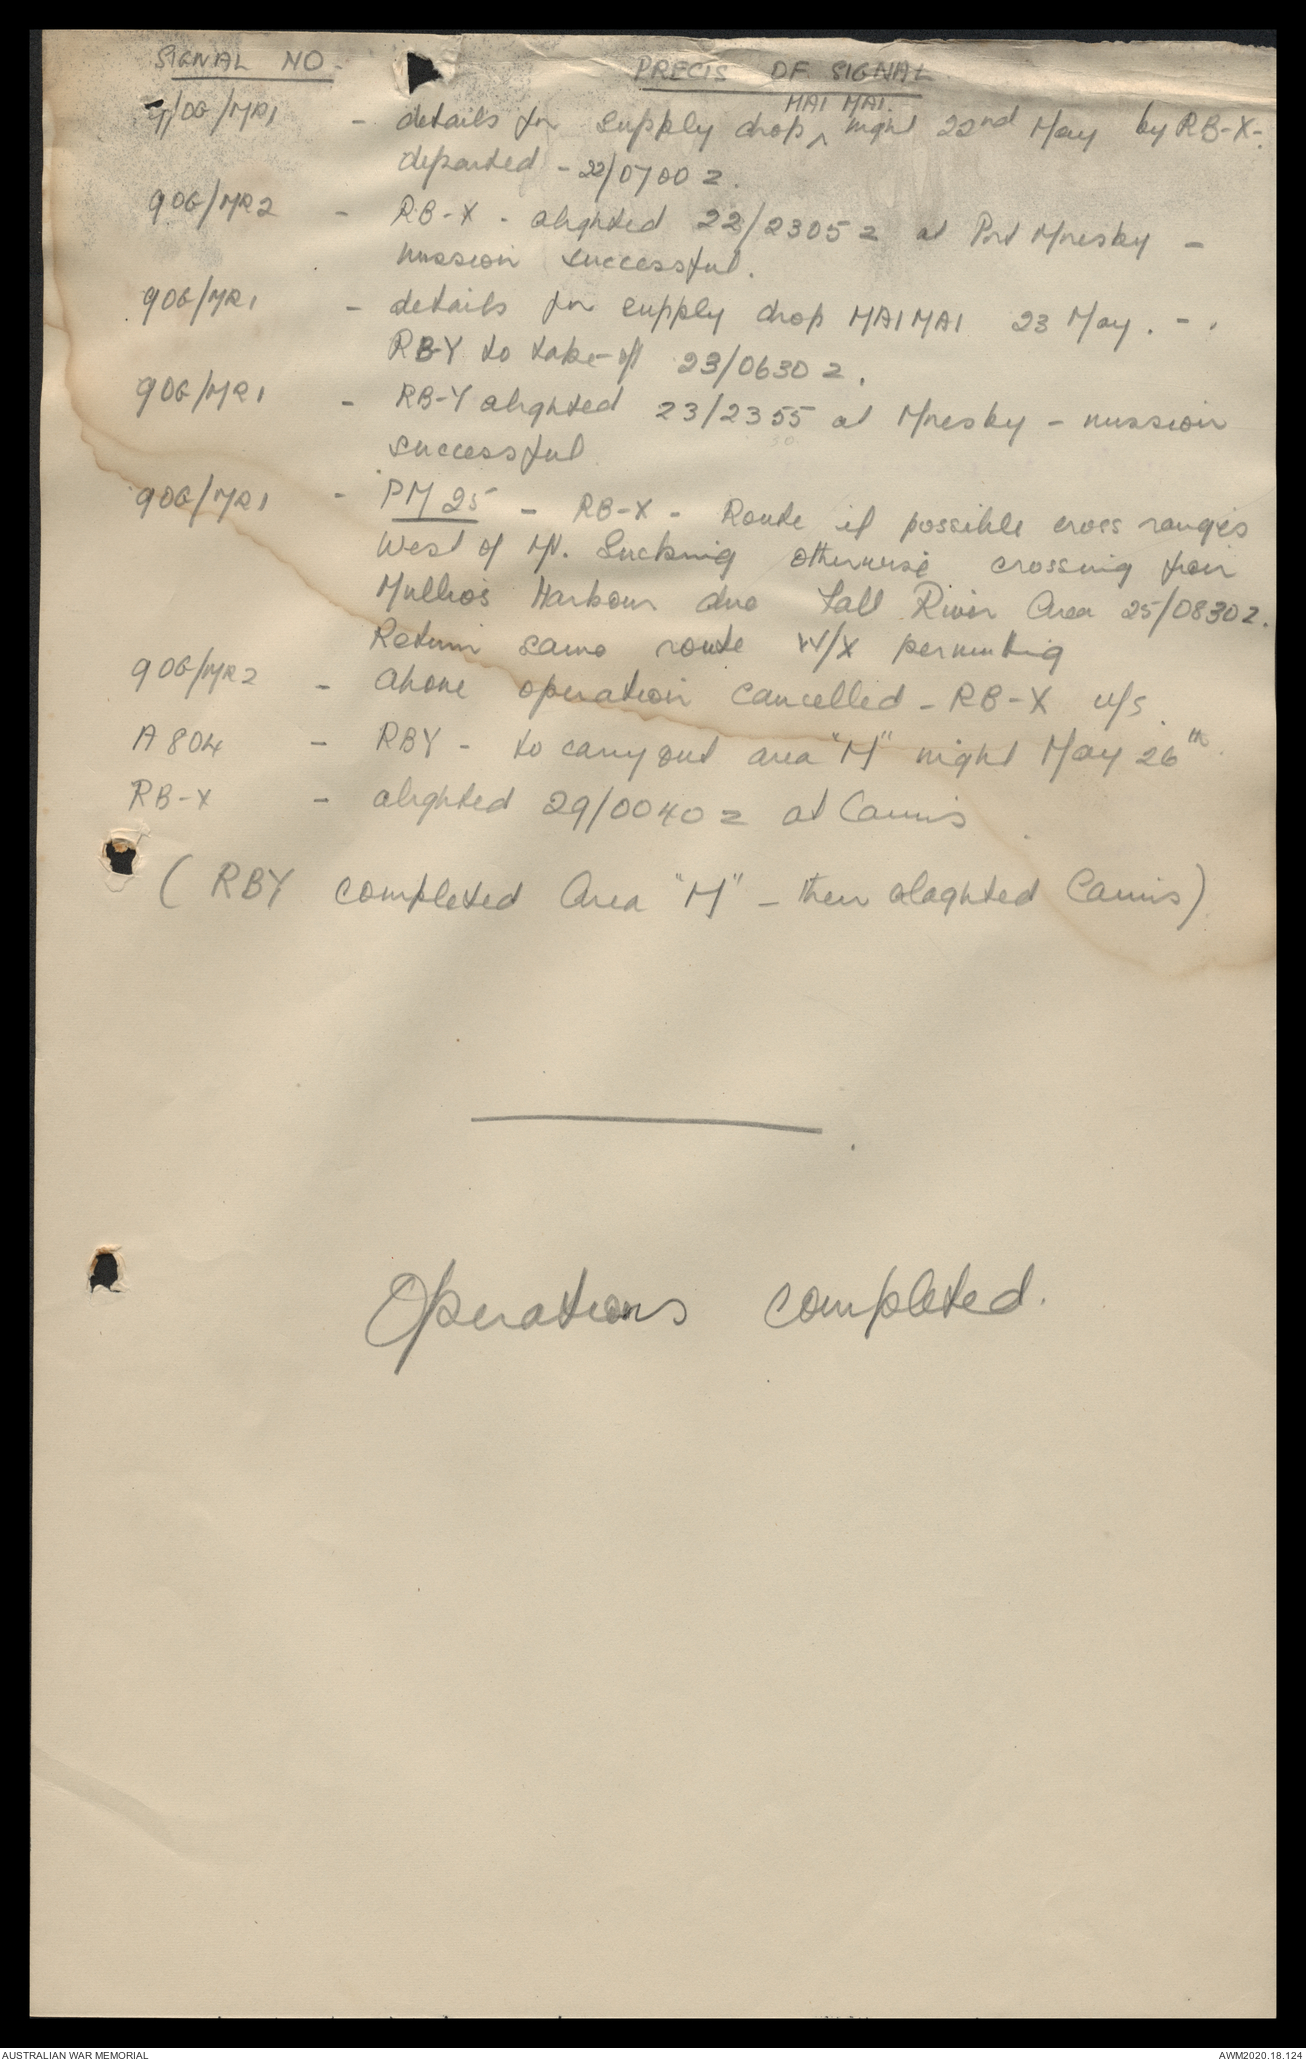 SIGNAL NO - PRECIS OF SIGNAL
MAI MAI.
9/06/MR1 - details for supply drop ^ night 22nd May by RB-X -
departed - 22/0700Z.
906/MR2 - RB-X - alighted 22/2305Z at Port Moresby -
mission successful.
906/MR1 - details for supply drop MAIMAI 23 May. - .
RB-Y to take-off 23/0630Z.
906/MR1 - RB-Y alighted 23/2355 at Moresby - mission
successful
906/MR1 - PM 25 - RB-X - Route if possible cross ranges
West of Mt. Suckling otherwise crossing from
Mullins Harbour due Fall River Area 25/0830Z.
Return same route W/X permitting
906/MR2 - above operation cancelled - RB-X u/s.
A804 - RBY - to carry out area "M" night May 26th.
RB-X - alighted 29/0040Z at Cairns
(RBY completed Area "M" - then alaghted Cairns)
Operations completed.
AUSTRALIAN WAR MEMORIAL AWM2020.18.124